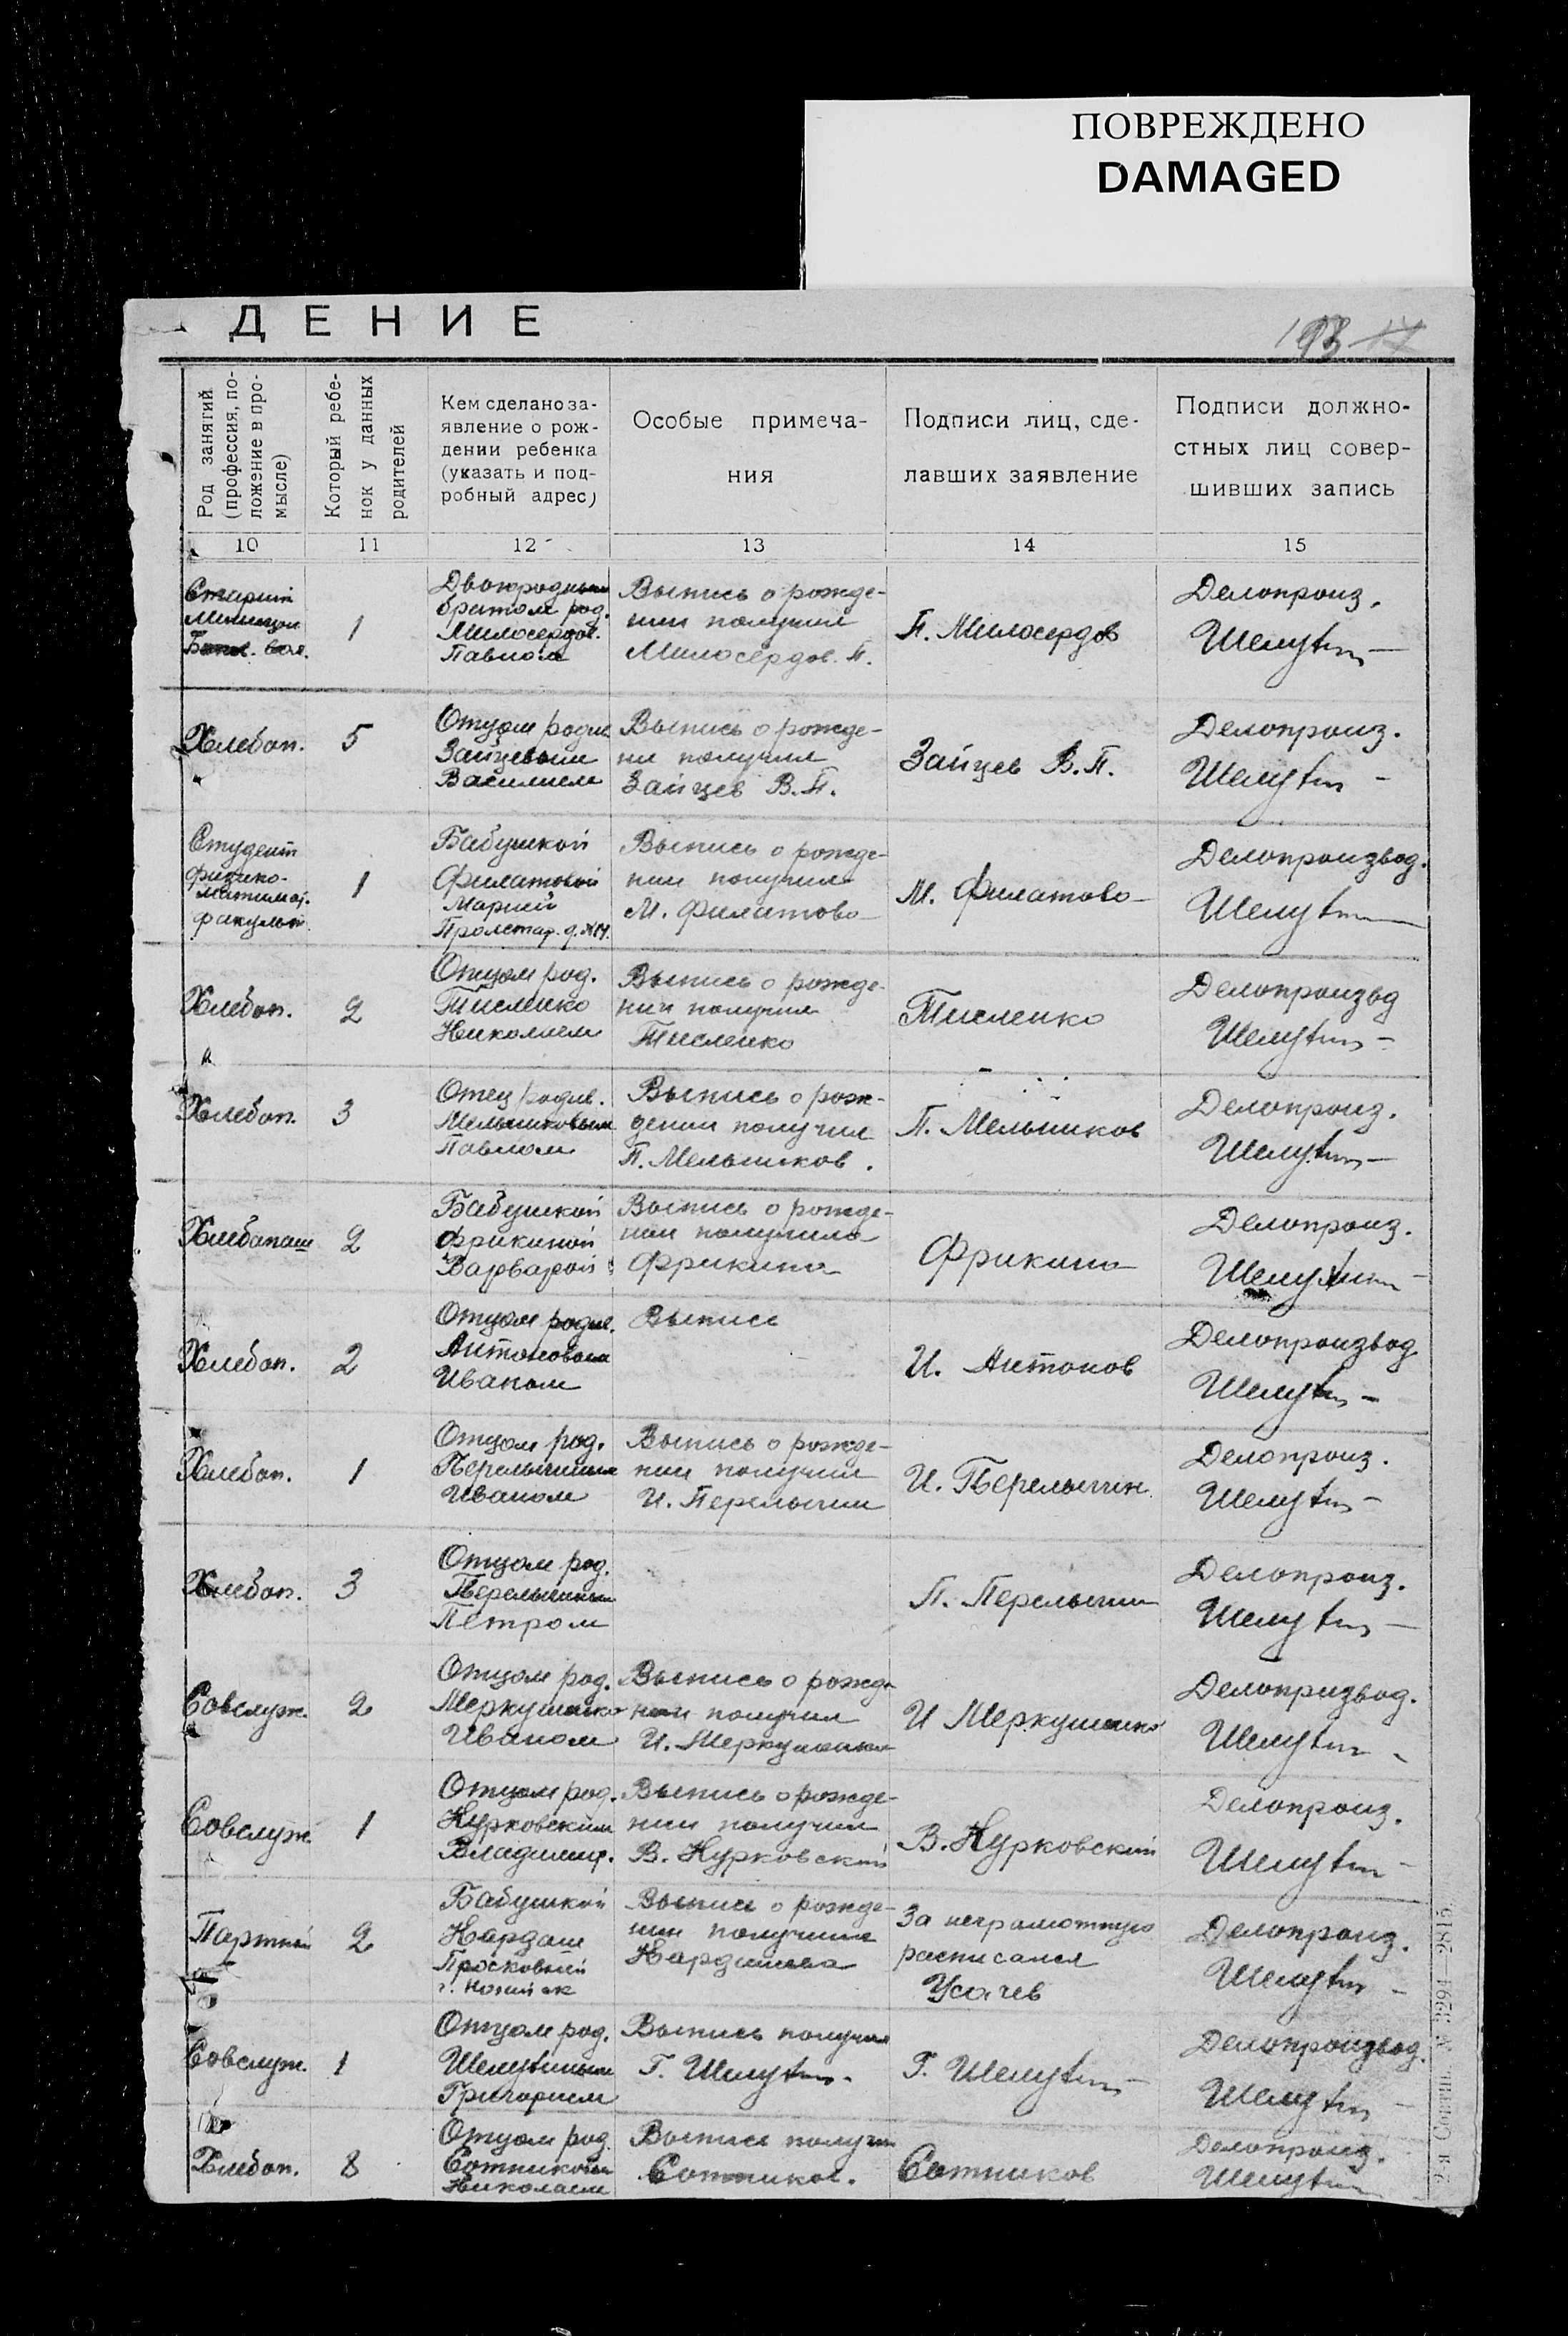 ПОВРЕЖДЕНО
DAMAGED
ДЕНИЕ
193
Род занятий
(профессия, по-
ложение в про-
мысле)
Который ребе-
нок у данных
родителей
Кем сделано за-
явление о рож-
дении ребенка
(указать и под-
робный адрес)
Особые примеча-
ния
Подписи лиц, сде-
лавших заявление
Подписи должно-
стных лиц совер-
шивших запись
10
11
12
13
14
15
Старший
1
Двоюродным
братом род.
Милосердов.
Павлом
Выпись о рожде-
нии получил
Милосердов. П.
П. Милосердов
Делопроиз.
Шелутин
Хлебоп.
5
Отцом родив
Зайцевым
Василием
Выпись о рожде-
ни получил
Зайцев В.П.
Зайцев В.П.
Делопроиз.
Шелутин
Студент
физико-
матимат.
факульт.
1
Бабушкой
Филатовой
Марией
Пролетар. д. №14.
Выпись о рожде-
нии получила
М. Филатова
М. Филатова
Делопроизвод.
Шелутин
Хлебоп.
2
Отцом род.
Тисленко
Николаем
Выпись о рожде-
нии получил
Тисленко
Тисленко
Делопроизвд
Шелутин
Хлебоп.
3
Отец родив.
Мельниковым
Павлом
Выпись о рож-
дении получил
П. Мельников.
П. Мельников
Делопроиз.
Шелутин
Хлебопаш
2
Бабушкой
Фрикиной
Варварой
Выпись о рожде-
нии получила
Фрикина
Фрикина
Делопроиз.
Шелутин
Хлебоп.
2
Отцом родив.
Антоновым
Иваном
Выпись
И. Антонов
Делопроизвод
Шелутин
Хлебоп.
1
Отцом род.
Перелыгиным
Иваном
Выпись о рожде-
нии получил
И. Перелыгин
И. Перелыгин
Делопроиз.
Шелутин
Хлебоп.
3
Отцом род.
Перелыгиным
Петром
П. Перелыгин
Делопроиз.
Шелутин
Совслуж.
2
Отцом род.
Меркушенко
Иваном
Выпись о рожде
нии получил
И. Меркушенко
И Меркушенко
Делопризвод.
Шелутин
Совслуж
1
Отцом род.
Курковским
Владимир.
Выпись о рожде-
нии получил
В. Курковский
В. Курковский
Делопроиз.
Шелутин
Портной
2
Бабушкой
Кардаш
Просковьий
Выпись о рожде-
нии получила
За неграмотную
расписался
Усачев
Делопроиз.
Шелутин
Совслуж.
1
Отцом род.
Шелутиным
Григорием
Выпись получил
Г. Шелутин.
Г. Шелутин
Делопроизвод.
Шелутин
Хлебоп.
8
Отцом род.
Сотниковым
Николаем
Выписи получил
Сотников.
Сотников
Делопроиз.
Шелутин